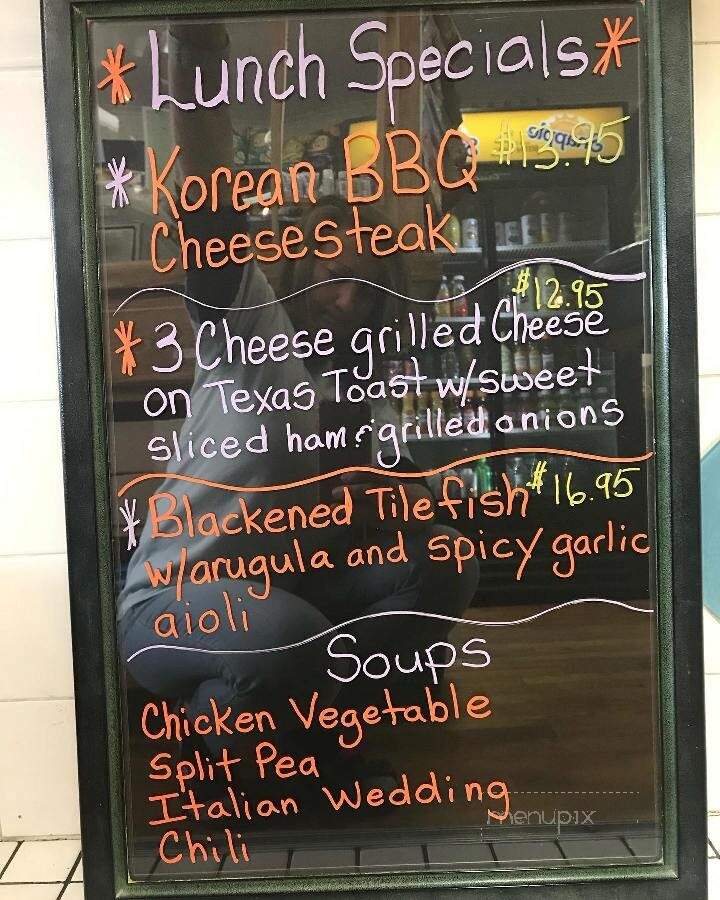 * Lunch Specials *
* Korean BBQ $13.95
Cheesesteak
$12.95
* 3 Cheese grilled Cheese
on Texas Toast w/sweet
sliced ham & grilled onions
* Blackened Tilefish $16.95
w/arugula and spicy garlic
aioli
Soups
Chicken Vegetable
Split Pea
Italian Wedding
Chili
menupix